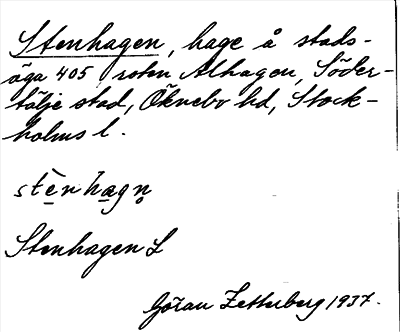 Stenhagen, hage å stads-
äga 405, roten Alhagen, Söder-
tälje stad, Öknebo hd, Stock-
holms l.
stè̱nha̱gn̥
Stenhagen L
Göran Zetterberg 1937.